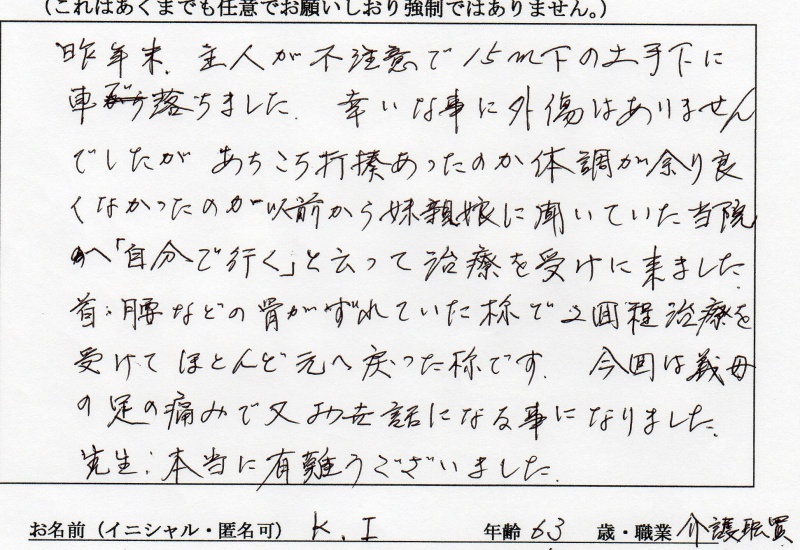 （これはあくまでも任意でお願いしおり強制ではありません。）
昨年末、主人が不注意で15m下の土手下に
車ごと落ちました。幸いな事に外傷はありません
でしたが あちこち打撲あったのか体調が余り良
くなかったのが以前から妹親娘に聞いていた当院
へ「自分で行く」と云って治療を受けに来ました。
首、腰などの骨がずれていた様で2回程治療を
受けてほとんど元へ戻った様です。今回は義母
の足の痛みで又お世話になる事になりました。
先生、本当に有難うございました。
お名前（イニシャル・匿名可） K.I 年齢 63 歳・職業 介護